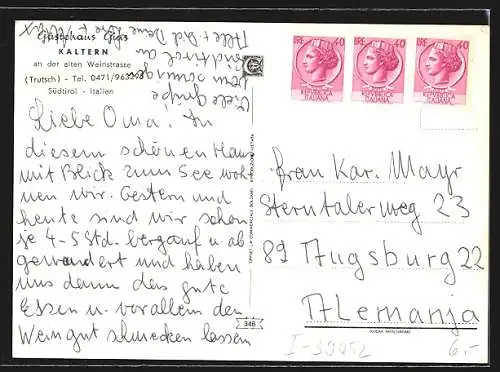 Gästehaus Gius
KALTERN
an der alten Weinstrasse
(Trutsch) - Tel. 0471/963
Südtirol - Italien
Liebe Oma. In
diesem schönen Haus
mit Blick zum See woh
nen wir. Gestern und
heute sind wir schon
je 4-5 Std. bergauf u. ab
gewandert und haben
uns dann das gute
Essen u. vorallem den
Wein gut schmecken lassen
Viele Grüße
vom sonnigen
Südtirol an
LIRE 40
REPVBBLICA
ITALIANA
LIRE 40
REPVBBLICA
ITALIANA
LIRE 40
REPVBBLICA
ITALIANA
Frau Kar. Mayr
Sterntalerweg 23
89 Augsburg 22
Alemanja
346
6,-